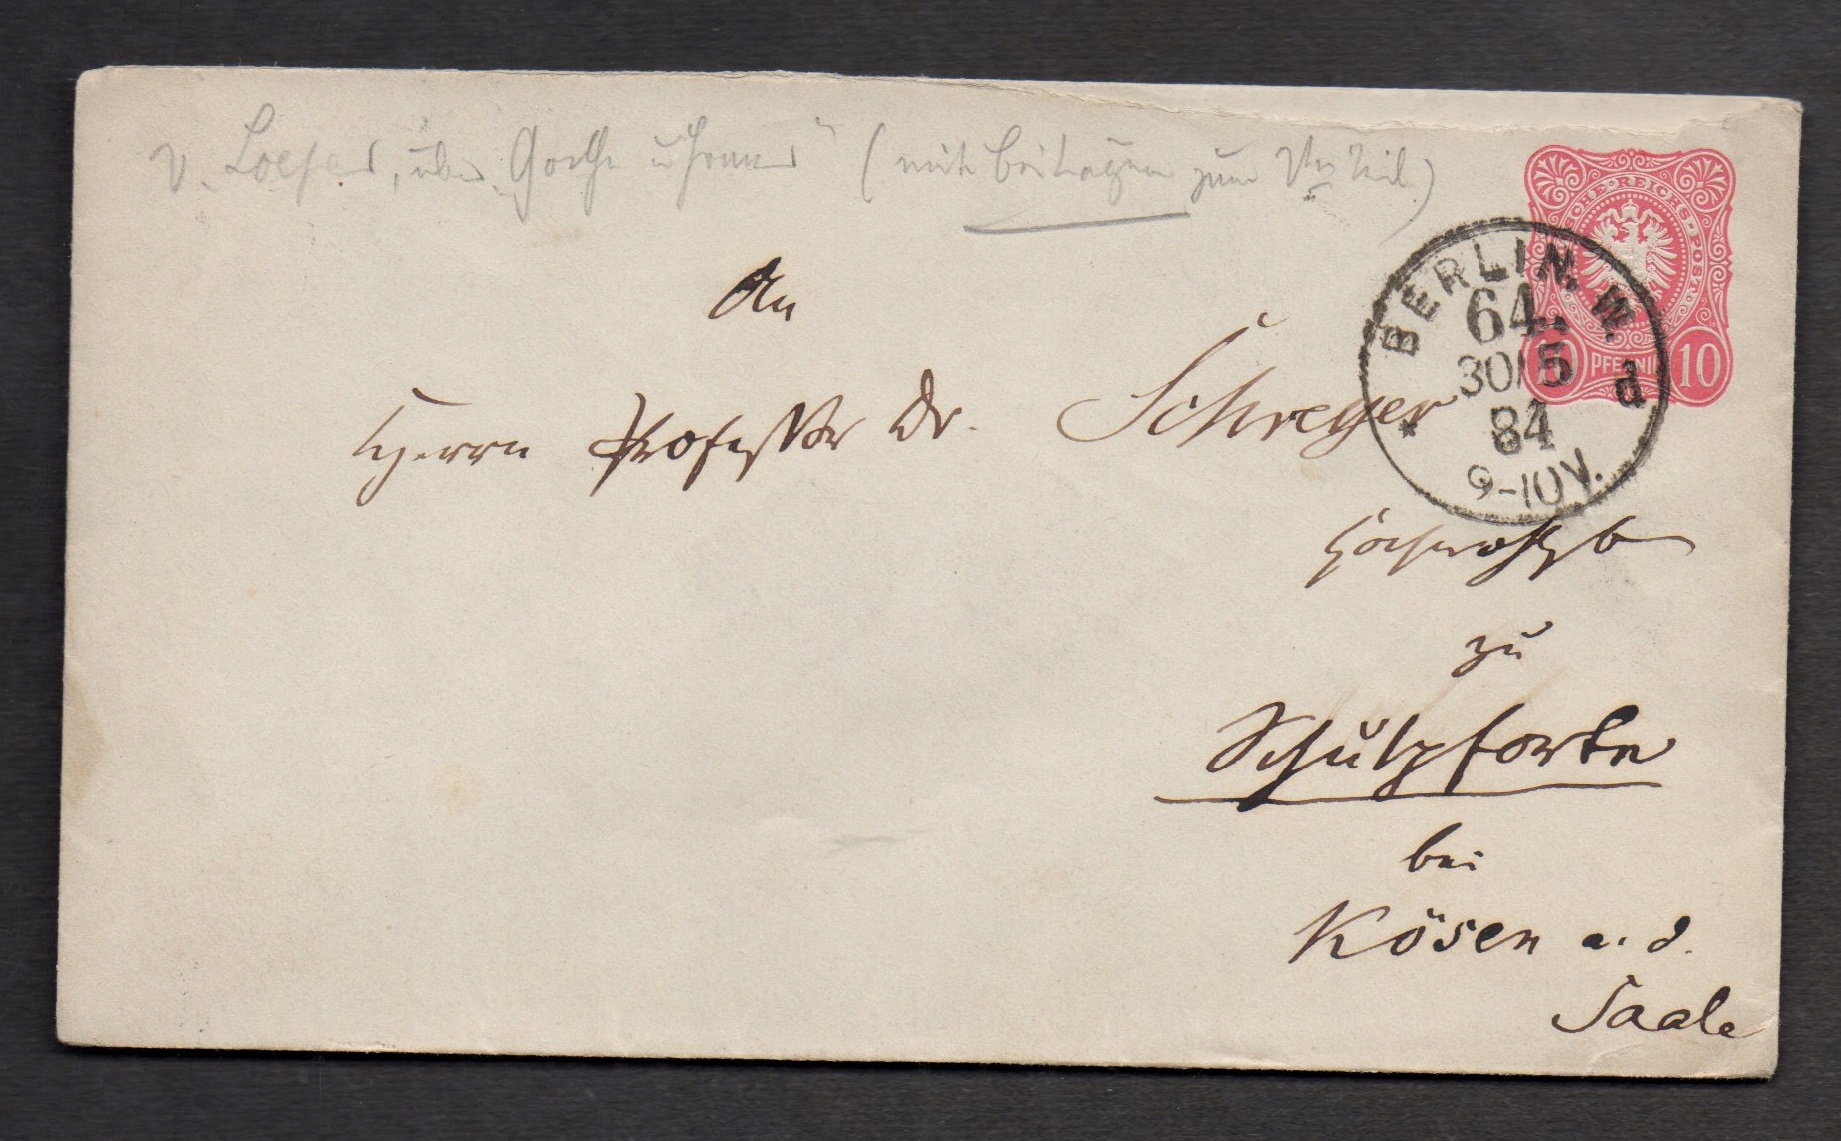 v. Loeper, über „Goethe u (mit Beiträgen zum Urteil)
DEUTSCHE · REICHS-POST
10 PFENNIG 10
BERLIN, W.
64.
30/5 d
84
9-10V.
An
Herrn Professor Dr. Schreyer
Hochwohlgb
zu
Schulpforte
bei
Kösen a. d.
Saale